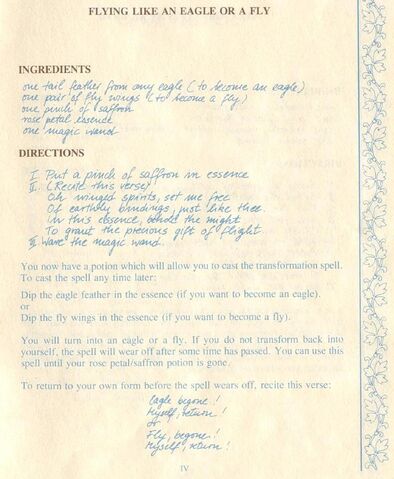 FLYING LIKE AN EAGLE OR A FLY
INGREDIENTS
one tail feather from any eagle (to become an eagle)
one pair of fly wings (to become a fly)
one pinch of saffron
rose petal essence
one magic wand
DIRECTIONS
I. Put a pinch of saffron in essence
II. (Recite this verse)
Oh winged spirits, set me free
Of earthly bindings, just like thee.
In this essence, behold the might
To grant the precious gift of flight.
III. Wave the magic wand.
You now have a potion which will allow you to cast the transformation spell.
To cast the spell any time later:
Dip the eagle feather in the essence (if you want to become an eagle).
or
Dip the fly wings in the essence (if you want to become a fly).
You will turn into an eagle or a fly. If you do not transform back into
yourself, the spell will wear off after some time has passed. You can use this
spell until your rose petal/saffron potion is gone.
To return to your own form before the spell wears off, recite this verse:
Eagle begone!
Myself, return!
or
Fly, begone!
Myself, return!
IV